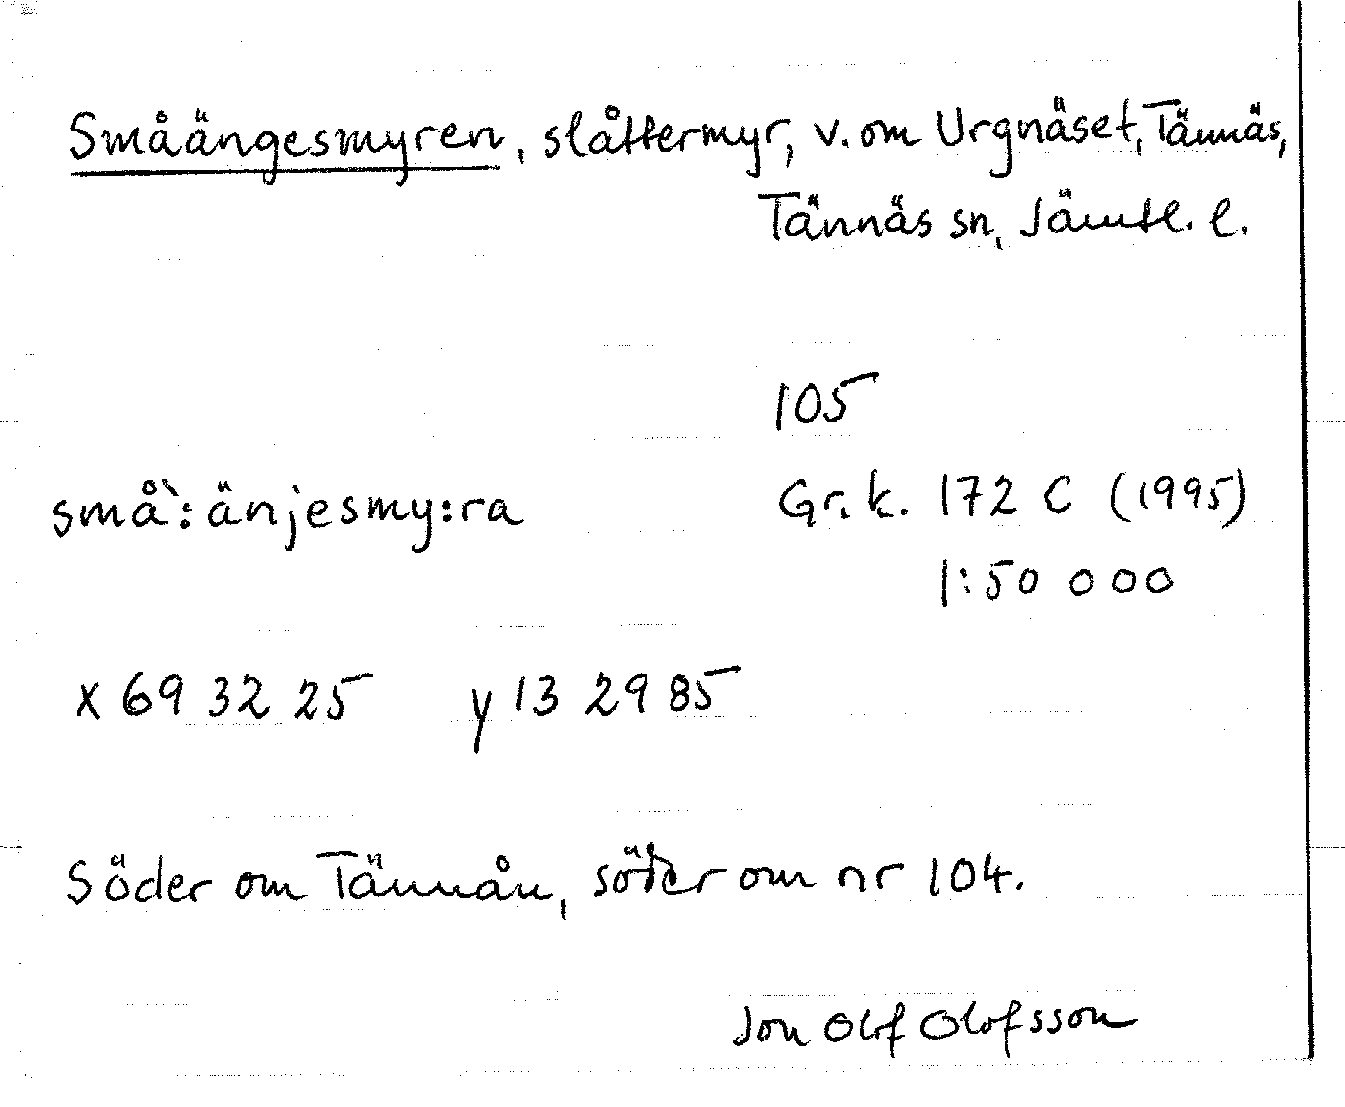 Småängesmyren, slåttermyr, v. om Urgnäset, Tännäs,
Tännäs sn, Jämtl. l.
105
små`: änjesmy:ra
Gr. k. 172 C (1995)
1:50 000
x 69 32 25 y 13 29 85
Söder om Tännån, söder om nr 104.
Jon Olof Olofsson